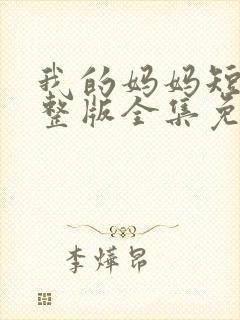 我的妈妈短
整版全集免
李烨昂